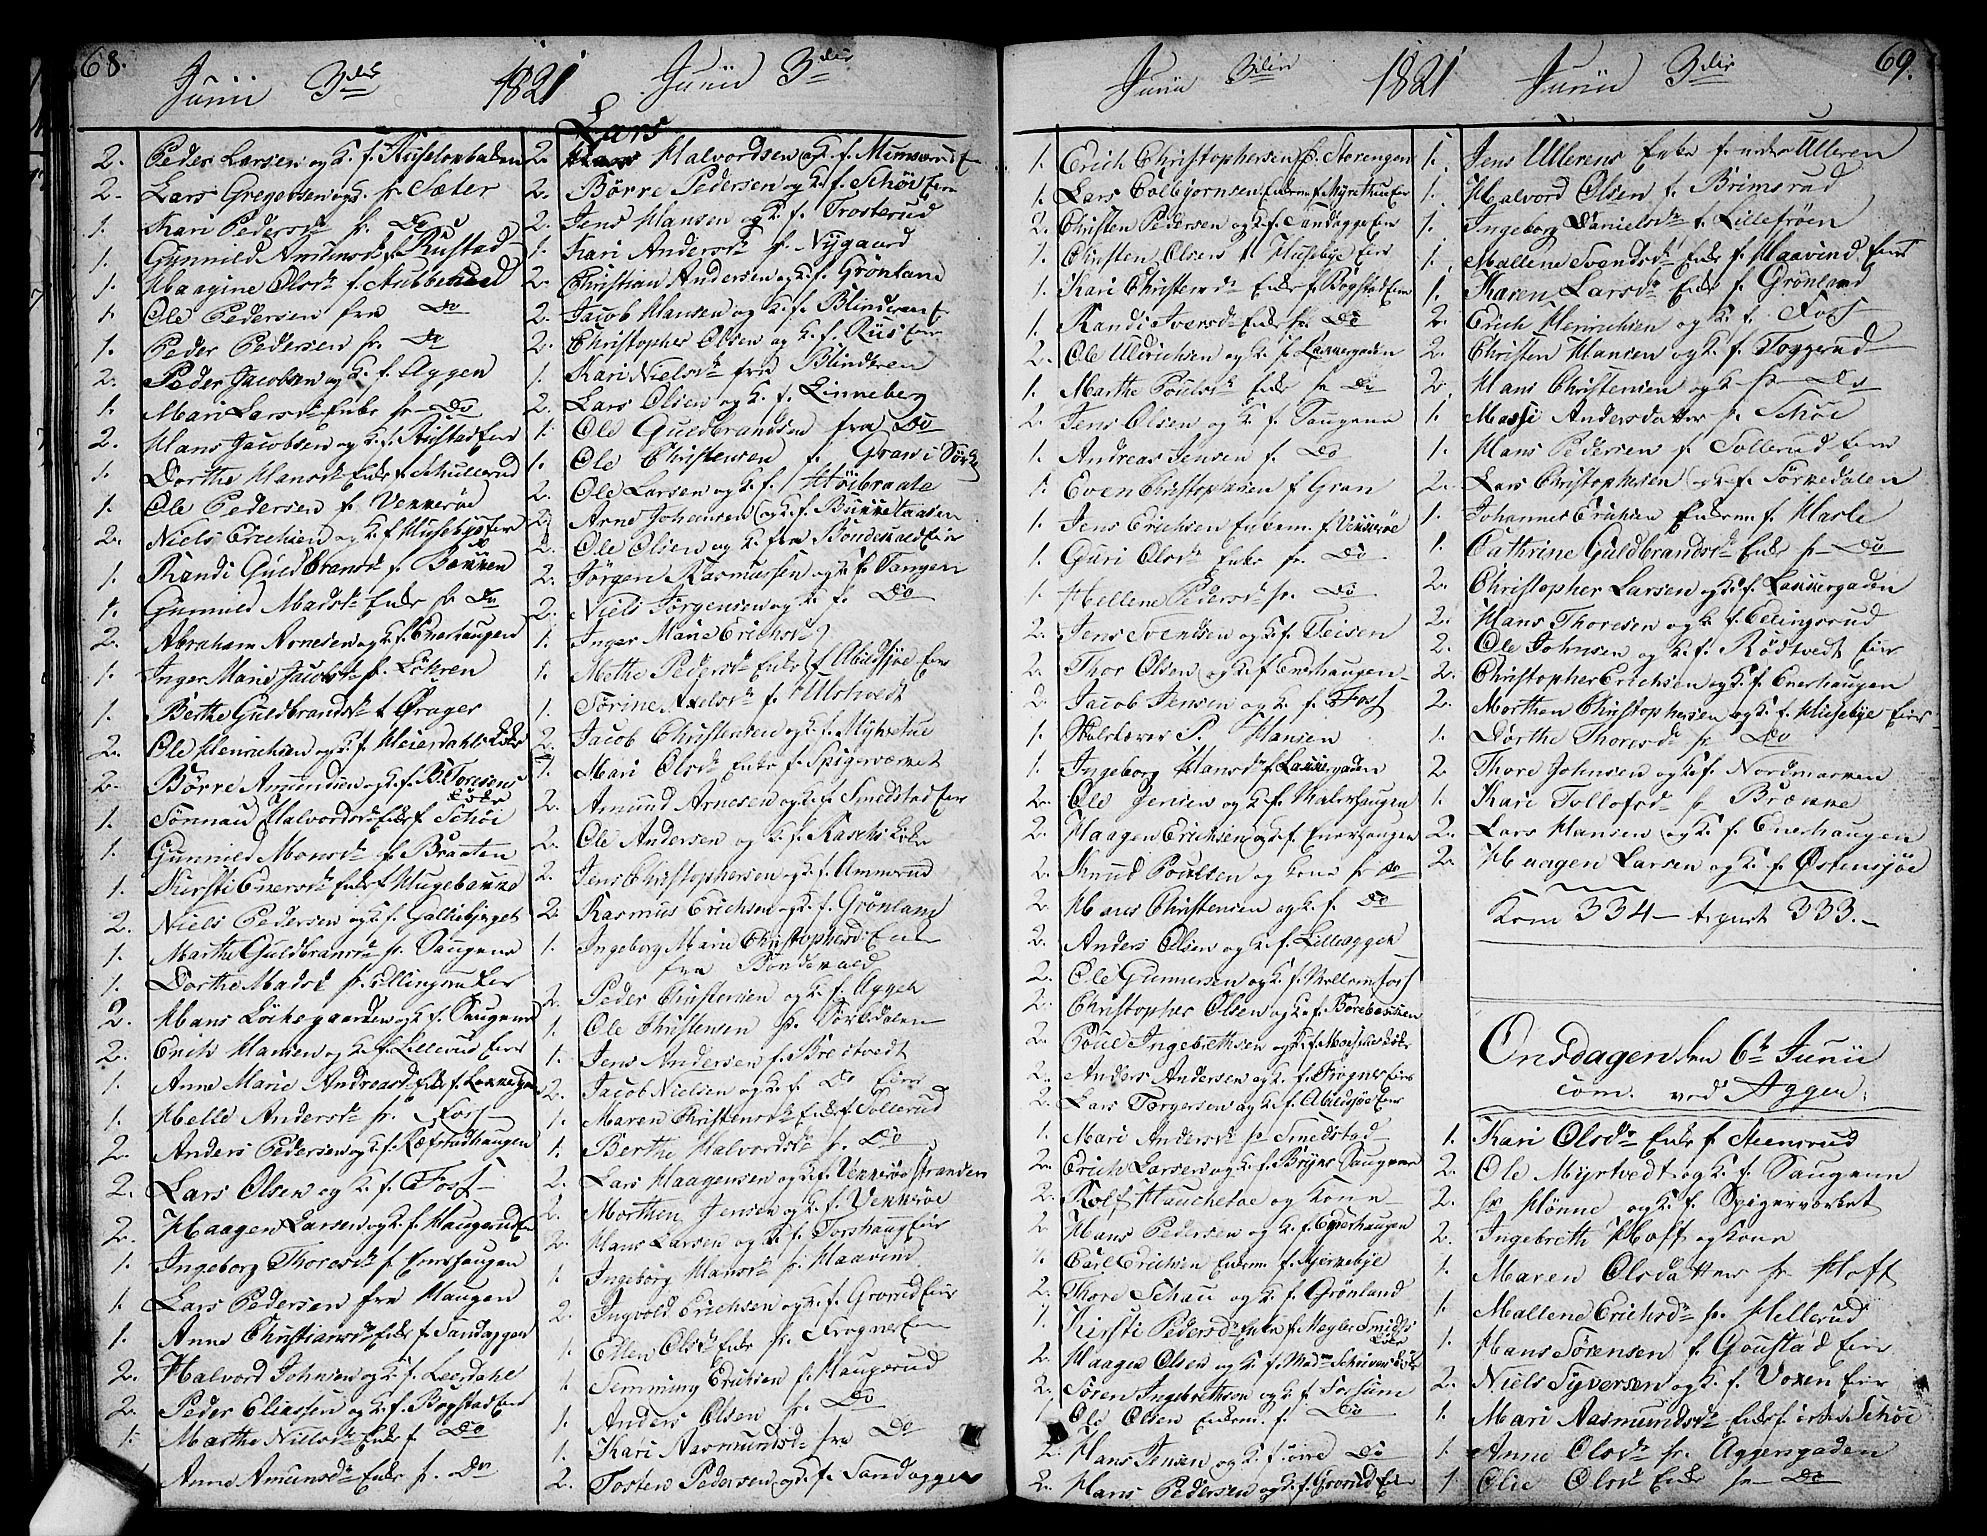 68.
Junii 3die 1821 Junii 3die
2. Peder Larsen og K. f.
2. Lars Gregersen og K. fr Sæter
1. Kari Pedersdr fr. Do
1. Gunnild Amundsdr f. Rustad
1. Maagine Olsdr f.
1. Ole Pedersen fra Do
1. Peder Pedersen fr. Do
2. Peder Jacobsen og K. f. Aggen
1. Mari Larsdr Enke fr Do
2. Hans Jacobsen og K. f.
1. Dorthe Hansdr Enke f. Schullerud
1. Ole Pedersen f. Vækkerøe
2. Niels Erichsen og K. f Husebye Eier
1. Randi Guldbransdr f. Bakken
1. Gunnild Madsdr Enke fr. Do
2. Abraham Arnesen og K. f. Enerhaugen
1. Inger Marie Jacobsdr f. Løkren
1. Berthe Guldbrandsdr f Ørager
2. Ole Henrichsen og K. f. Heierdahls Løkke
2. Børre Amundsen og K. f. B. Toresens
Løkke
1. Tønnau Halvordsdr Enke f Schøi
1. Gunnild Monsdr f. Braaten
1. Kirsti Enersdr Enke f Hugebakke
2. Niels Pedersen og K f. Galliebjerget
1. Marthe Guldbransdr fr. Saugene
1. Dorthe Madsd fr. Ellingsrud Eier
2. Hans Lockegaarden og K f. Saugene
2. Erich Hansen og K. f. Lillerud Eier
1. Anne Marie Andreasdr f. Lakkegaden
1. Helle Andersdr fr. Foss
2. Anders Pedersen og K f. Refstadhaugen
2. Lars Olsen og K. f. Foss
2. Haagen Larsen og K. f. Haugerud Eie
1. Ingeborg Thoresdr f. Enerhaugen
1. Lars Pedersen fra Haugen
1. Anne Christiansdr Enke f Sandaggen
2. Halvord Johnsen og K f. Leerdahl
2. Peder Eliassen og K. f. Bogstad Eier
1. Marthe Nielsdr Enke f Do
1. Anne Amunsdr Enke fr. Do
Lars
2. Halvordsen og K. f. Munkerud E
2. Børre Pedersen og K. f. Schøi Eier
2. Jens Hansen og K. f. Trosterud
1. Kari Andersdr fr. Nygaard
2. Christian Andersen og K. f. Grønland
2. Jacob Hansen og K. f. Blinderen E
2. Christopher Olsen og K. f. Riis Eier
1. Kari Nielsdr fra Blinderen
2. Lars Olsen og K. f. Linneberg
1. Ole Guldbrandsen fra Do
1. Ole Christensen f. Gran i Sørke
2. Ole Larsen og K. f. Høibraate
2. Arne Johansen og K. f. Bakkehausen
2. Ole Olsen og K. fra Bondevald Eie
2. Jørgen Rasmussen og K. f. Tangen
2. Niels Jørgensen og K. f. Do
1. Inger Marie Erichsdr
1. Mette Pedersdr Enke f Abildsøe Eier
1. Torine Axelsdr f. Ulstvedt
2. Jacob Christensen og K. f. Myhrstue
1. Mari Olsdr Enke f. Spigerværket
2. Amund Arnesen og K. f. Smedstad Eier
2. Ole Andersen og K. f. Raschs Løkke
2. Jens Christophersen og K f. Ammerud
2. Rasmus Erichsen og K. f. Grønland
1. Ingeborg Marie Christophersd Enke
fra Bondevald
2. Peder Christensen og K. f. Aggen
1. Ole Christensen fr. Sørkedalen
1. Jens Andersen f. Bredtvedt
2. Jacob Nielsen og K. f. Do Eier
1. Maren Christensdr Enke f. Sollerud
1. Berthe Halvordsdr fr. Do
2. Lars Haagensen og K. f. Vækkerøe Stranden
2. Morthen Jensen og K. f. Vækkerøe
2. Hans Larsen og K. f. Torshaug Eier
1. Ingeborg Hansdr fr. Haavind
2. Ingvold Erichsen og K. f. Grorud Eier
1. Ellen Olsdr Enke fr. Frogner Eie
1. Temming Erichsen f. Haugerud
1. Anders Olsen fr. Do
1. Kari Aasmundsd fra Do
2. Tosten Pedersen og K. f. Sandaggen
69.
Junii 3die 1821 Junii 3die
1. Erich Christophersen f. Storengen
1. Lars Colbjornsen Enkem f. Myrethu Eier
2. Christen Pedersen og K. f. Sandagge Eier
1. Christen Olsen f Husebye Eier
1. Kari Christensdr Enke f. Bogstad Eier
1. Randi Iversdr Enke fr. Do
2. Ole Uldrichsen og K. f. Lakkegaden
1. Marthe Poulsdr Enke fr Do
2. Jens Olsen og K. f. Saugene
1. Andreas Jensen f. Do
1. Even Christophersen f Gran
1. Jens Erichsen Enkem. f. Vækkerøe
1. Guri Olsdr Enke fr. Do
1. Hellene Pedersdr fr. Do
2. Jens Svendsen og K f. Teisen
2. Thor Olsen og K. f. Enerhaugen
2. Jacob Jensen og K. f. Foss
1. P. Hansen
1. Ingeborg Hansdr f. Lakkegaden
2. Ole Jensen og K. f. Malerhaugen
2. Haagen Erichsen og K. f. Enerhaugen
2. Knud Poulsen og Kone fr Do
2. Hans Christensen og K. f. Do
2. Anders Olsen og K. f. Lilleaggen
2. Ole Gunnersen og K. f. Mellem Foss
2. Christopher Olsen og K. f. Børrebækken
2. Poul Ingebrethsen og K. f. Løkke
2. Anders Andersen og K. f. Frogner Eier
2. Lars Torgersen og K. f. Abildsøe Eier
1. Mari Andersdr fr Smedstad
2. Erich Larsen og K. f. Bryns Saugene
2. Rolf Hauchetoe og Kone
2. Hans Pedersen og K. f. Enerhaugen
1. Carl Erichsen Enkem. f. Bjerkebye
2. Thore Schau og K. f. Grønland
1. Kirsti Pedersd Enke f. Megler Smidts
Løkke
2. Haagen Olsen og K. f. Mad Schriver Løkke
2. Søren Ingebrethsen og K. f. Forsum
1. Ole Olsen Enkem. f. Do
2. Hans Jensen og K. f. øvre Do
2. Hans Pedersen og K. f. Grorud Eier
1. Jens Ullerens Enke f. nedre Ulleren
1. Halvord Olsen f. Brimsrud
1. Ingeborg Danielsdr f. Lillefrøen
1. Mallene Svendsdr Enke f. Haavind Eier
1. Karen Larsdr Enke f. Grønland
2. Erich Heinrichsen og K. f. Foss
2. Christen Hansen og K. f. Toggerud
2. Hans Christensen og K. fr Do
1. Massi Andersdatter fr. Schøi
1. Hans Pedersen f. Sollerud Eier
2. Lars Christophersen og K. f. Sørkedalen
1. Johannes Erichsen Enkem f. Harle
1. Cathrine Guldbrandsdr Enke fr Do
2. Christopher Larsen og K. f. Lakkergaden
2. Hans Thoresen og K f Ellingsrud
2. Ole Johnsen og K. f. Rødtvedt Eier
2. Christopher Erichsen og K. f. Enerhaugen
2. Morthen Christophersen og K. f. Husebye Eier
1. Dorthe Thoresdr fr Do
2. Thore Johnsen og K. f. Nordmarken
1. Kari Tollefsdr fr Brænne
2. Lars Hansen og K. f. Enerhaugen
2. Haagen Larsen og K. f. Østensjøe
Kom 334 — tegnet 333.
Onsdagen den 6te Junii
com. ved Aggen.
1. Kari Olsdr Enke f Steensrud
2. Ole Myrtvedt og K. f. Saugene
2. Hønne og K. f. Spigerværket
2. Ingebreth Hoff og Kone
1. Maren Olsdatter fr Hoff
1. Mallene Erichsdr fr. Hellerud
1. Hans Sørensen f. Goustad Eier
2. Niels Syversen og K. f. Voxen Eier
1. Mari Aasmundsdr Enke f. Schøi
1. Anne Olsdr fr. Aggergaden
1. Olie Olsdr Enke fr Do